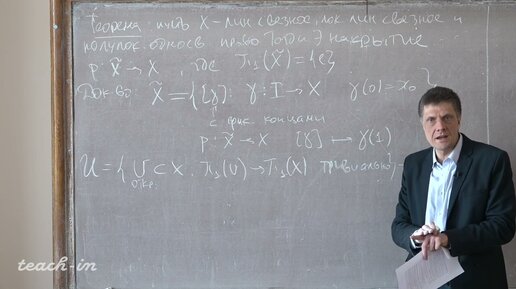 Теорема: пусть X - лин связное, лок лин связное и
полулок. односв. пр-во Тогда ∃ накрытие
p: X̃ → X, где π₁(X̃) = {e}
Док-во: X̃ = {[γ]: γ: I → X γ(0) = x₀}
с фикс. концами
p: X̃ → X [γ] ↦ γ(1)
𝒰 = { U ⊂ X, π₁(U) → π₁(X) тривиально}
откр.
teach-in